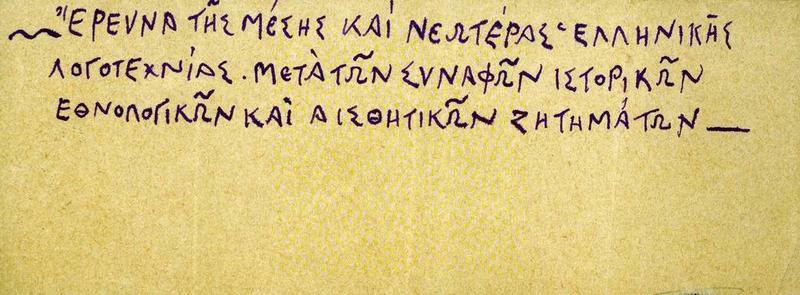 ~ ἜΡΕΥΝΑ ΤΗ͂Σ ΜΈΣΗΣ ΚΑῚ ΝΕΩΤΈΡΑΣ ἙΛΛΗΝΙΚΗ͂Σ
ΛΟΓΟΤΕΧΝΊΑΣ. ΜΕΤᾺ ΤΩ͂Ν ΣΥΝΑΦΩ͂Ν ΙΣΤΟΡΙΚΩ͂Ν
ΕΘΝΟΛΟΓΙΚΩ͂Ν ΚΑῚ ΑΙΣΘΗΤΙΚΩ͂Ν ΖΗΤΗΜΆΤΩΝ —